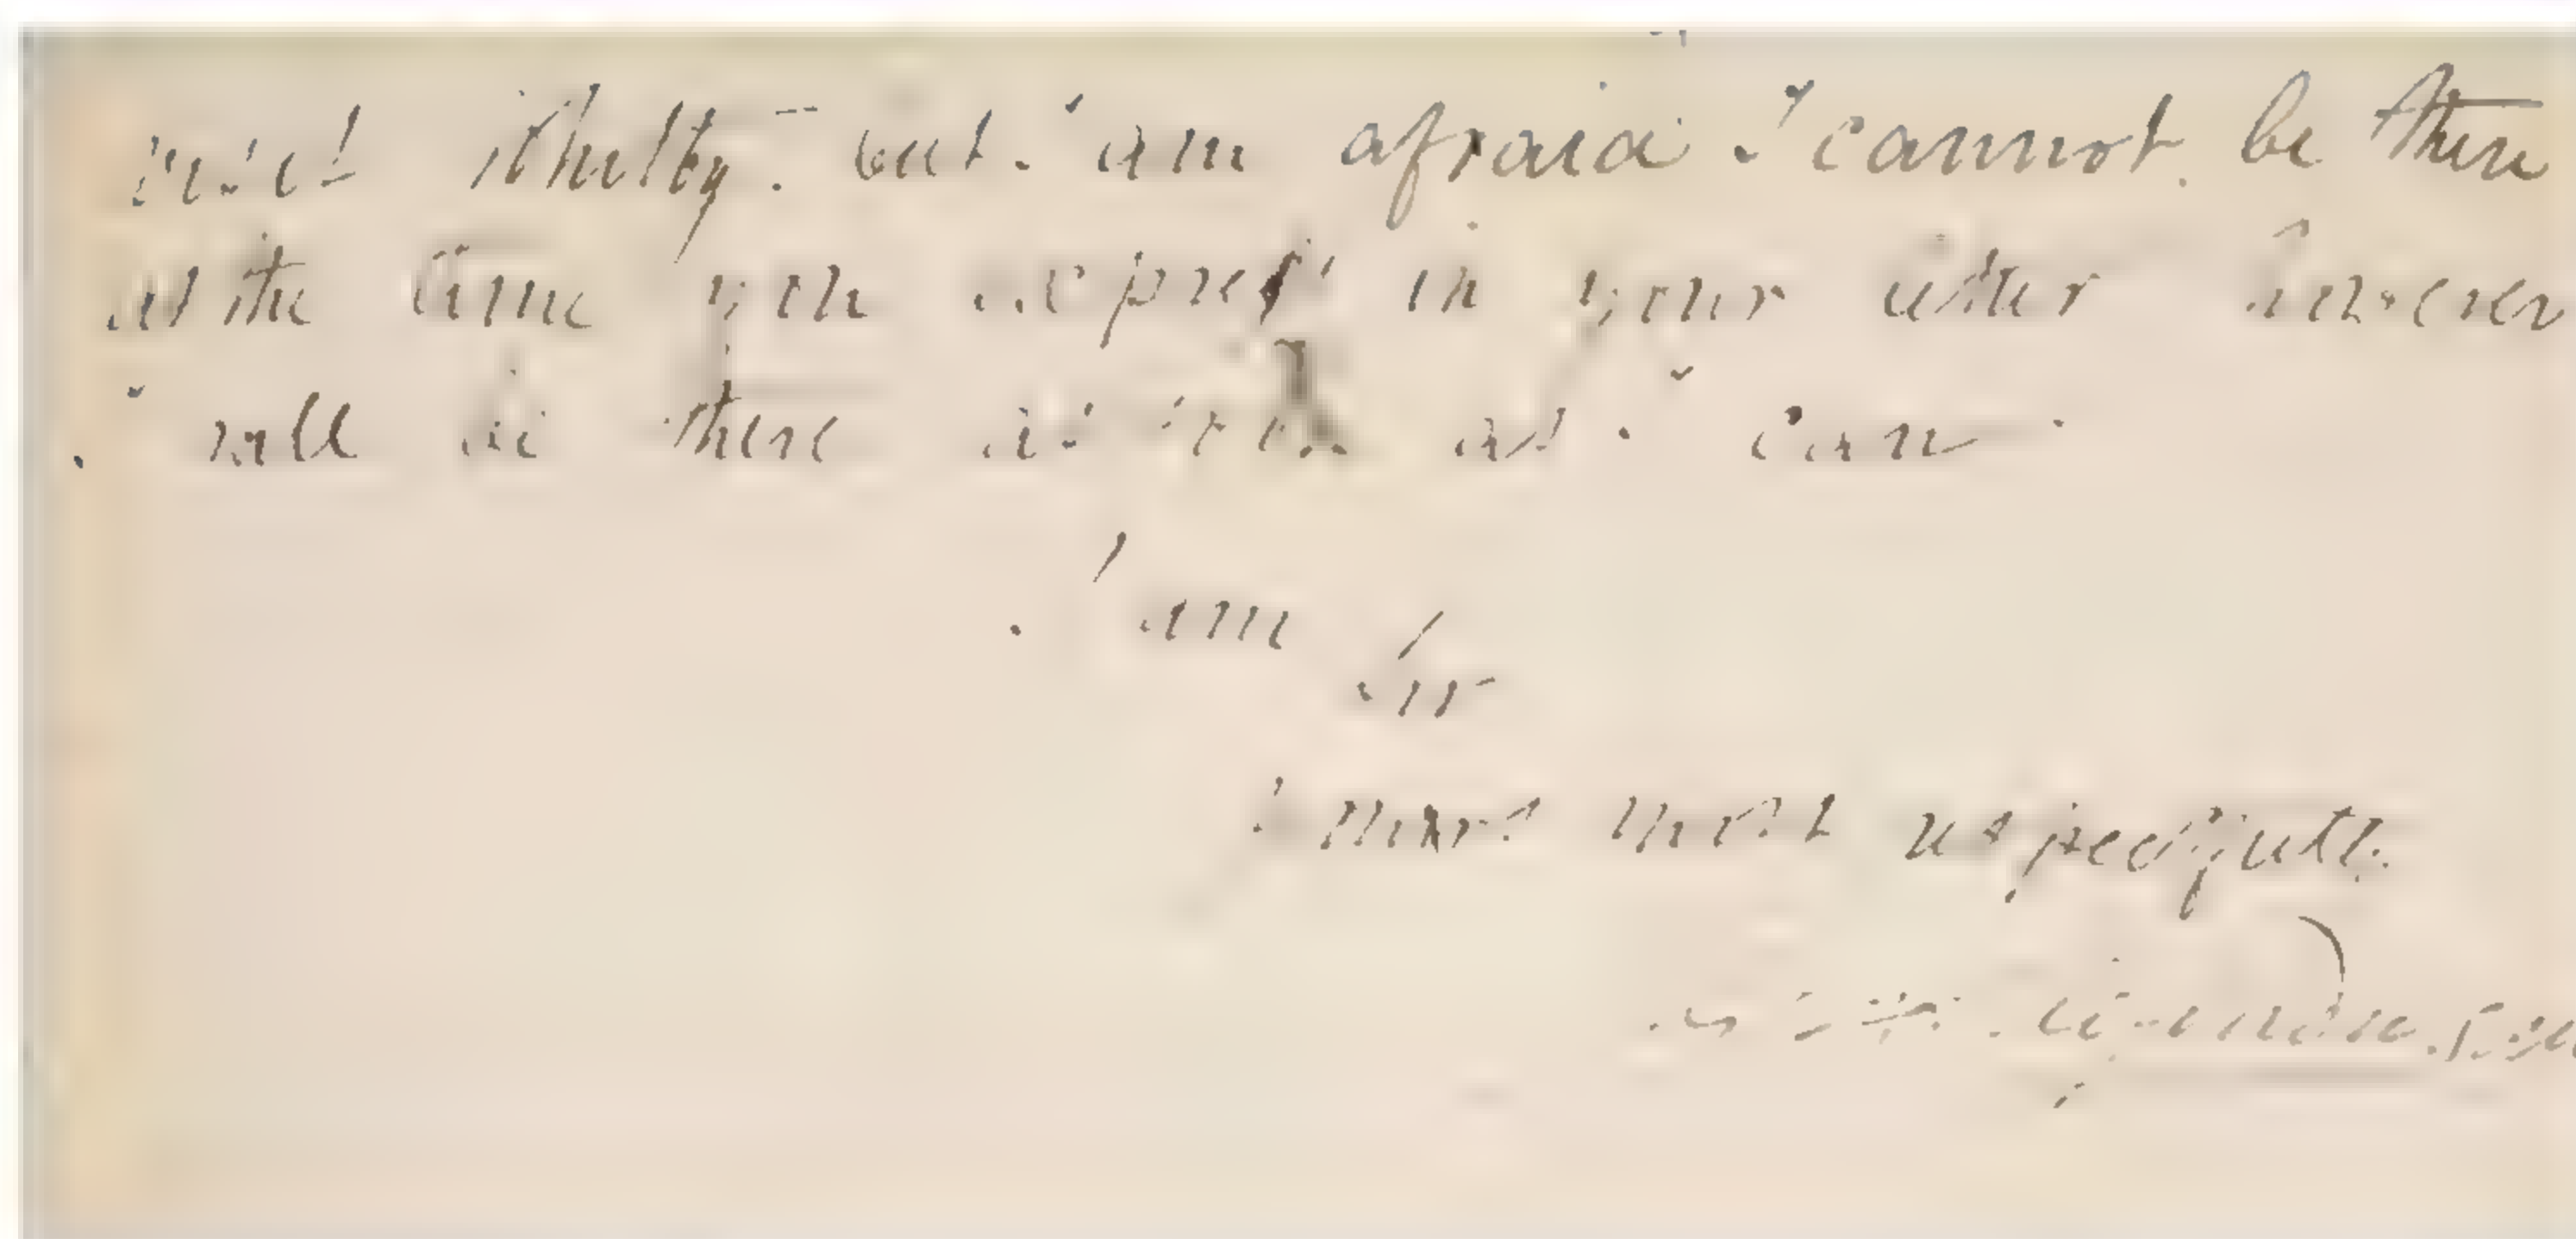 but I am afraid I cannot be there
at the time you express in your letter however
I will be there as soon as I can
I am
Sir
Yours most respectfully